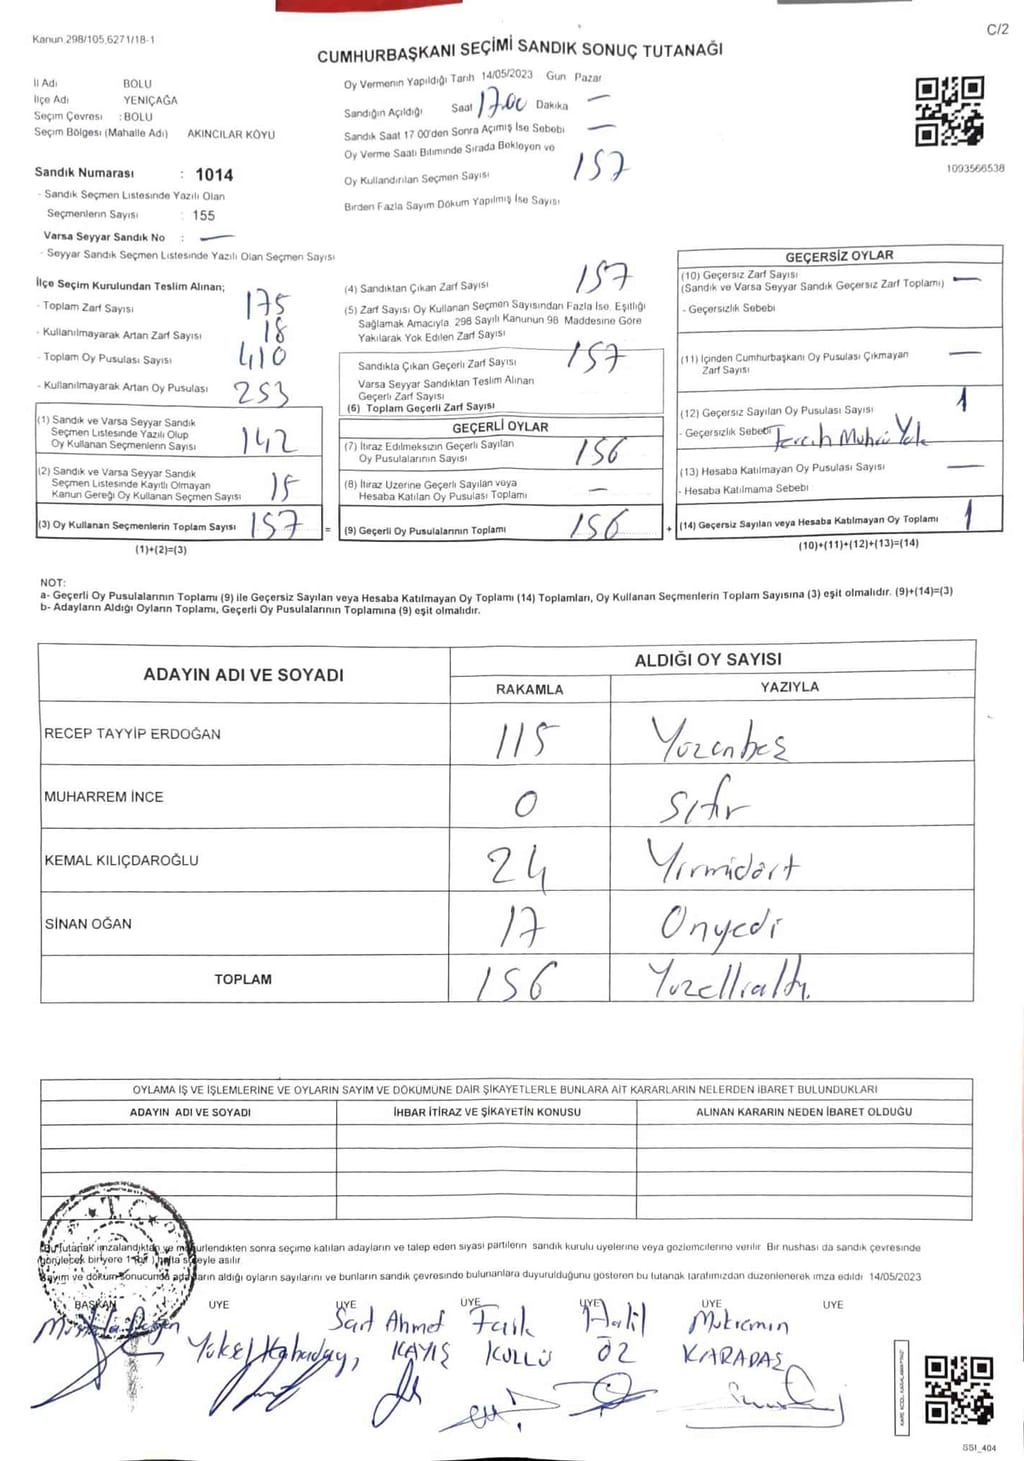 Kanun 298/105,6271/18-1
C/2
CUMHURBAŞKANI SEÇİMİ SANDIK SONUÇ TUTANAĞI
İl Adı BOLU
İlçe Adı YENİÇAĞA
Seçim Çevresi : BOLU
Seçim Bölgesi (Mahalle Adı) AKINCILAR KÖYÜ
Sandık Numarası : 1014
- Sandık Seçmen Listesinde Yazılı Olan
Seçmenlerin Sayısı : 155
Varsa Seyyar Sandık No : —
- Seyyar Sandık Seçmen Listesinde Yazılı Olan Seçmen Sayısı
Oy Vermenin Yapıldığı Tarih 14/05/2023 Gün Pazar
Sandığın Açıldığı Saat 17.00 Dakika —
Sandık Saat 17 00'den Sonra Açımış İse Sebebi —
Oy Verme Saati Bitiminde Sırada Bekleyen ve
Oy Kullandırılan Seçmen Sayısı 157
Birden Fazla Sayım Döküm Yapılmış İse Sayısı
1093566538
İlçe Seçim Kurulundan Teslim Alınan;
- Toplam Zarf Sayısı 175
- Kullanılmayarak Artan Zarf Sayısı 18
- Toplam Oy Pusulası Sayısı 410
- Kullanılmayarak Artan Oy Pusulası 253
(1) Sandık ve Varsa Seyyar Sandık
Seçmen Listesinde Yazılı Olup
Oy Kullanan Seçmenlerin Sayısı 142
(2) Sandık ve Varsa Seyyar Sandık
Seçmen Listesinde Kayıtlı Olmayan
Kanun Gereği Oy Kullanan Seçmen Sayısı 15
(3) Oy Kullanan Seçmenlerin Toplam Sayısı 157 =
(1)+(2)=(3)
(4) Sandıktan Çıkan Zarf Sayısı 157
(5) Zarf Sayısı Oy Kullanan Seçmen Sayısından Fazla İse, Eşitliği
Sağlamak Amacıyla, 298 Sayılı Kanunun 98 Maddesine Göre
Yakılarak Yok Edilen Zarf Sayısı
Sandıkta Çıkan Geçerli Zarf Sayısı 157
Varsa Seyyar Sandıktan Teslim Alınan
Geçerli Zarf Sayısı
(6) Toplam Geçerli Zarf Sayısı
GEÇERLİ OYLAR
(7) İtiraz Edilmeksizin Geçerli Sayılan
Oy Pusulalarının Sayısı 156
(8) İtiraz Üzerine Geçerli Sayılan veya
Hesaba Katılan Oy Pusulası Toplamı —
(9) Geçerli Oy Pusulalarının Toplamı 156 +
GEÇERSİZ OYLAR
(10) Geçersiz Zarf Sayısı
(Sandık ve Varsa Seyyar Sandık Geçersiz Zarf Toplamı) —
- Geçersizlik Sebebi
(11) İçinden Cumhurbaşkanı Oy Pusulası Çıkmayan
Zarf Sayısı —
(12) Geçersiz Sayılan Oy Pusulası Sayısı 1
- Geçersizlik Sebebi Tercih Mührü Yok
(13) Hesaba Katılmayan Oy Pusulası Sayısı —
- Hesaba Katılmama Sebebi
(14) Geçersiz Sayılan veya Hesaba Katılmayan Oy Toplamı 1
(10)+(11)+(12)+(13)=(14)
NOT:
a- Geçerli Oy Pusulalarının Toplamı (9) ile Geçersiz Sayılan veya Hesaba Katılmayan Oy Toplamı (14) Toplamları, Oy Kullanan Seçmenlerin Toplam Sayısına (3) eşit olmalıdır. (9)+(14)=(3)
b- Adayların Aldığı Oyların Toplamı, Geçerli Oy Pusulalarının Toplamına (9) eşit olmalıdır.
ADAYIN ADI VE SOYADI
ALDIĞI OY SAYISI
RAKAMLA YAZIYLA
RECEP TAYYİP ERDOĞAN 115 Yüzonbeş
MUHARREM İNCE 0 Sıfır
KEMAL KILIÇDAROĞLU 24 Yirmidört
SİNAN OĞAN 17 Onyedi
TOPLAM 156 Yüzellialtı.
OYLAMA İŞ VE İŞLEMLERİNE VE OYLARIN SAYIM VE DÖKÜMÜNE DAİR ŞİKAYETLERLE BUNLARA AİT KARARLARIN NELERDEN İBARET BULUNDUKLARI
ADAYIN ADI VE SOYADI İHBAR İTİRAZ VE ŞİKAYETİN KONUSU ALINAN KARARIN NEDEN İBARET OLDUĞU
Bu tutanak imzalandıktan ve mühürlendikten sonra seçime katılan adayların ve talep eden siyasi partilerin sandık kurulu üyelerine veya gözlemcilerine verilir. Bir nushası da sandık çevresinde
görülecek bir yere 1 (bir) hafta süreyle asılır.
Sayım ve döküm sonucunda adayların aldığı oyların sayılarını ve bunların sandık çevresinde bulunanlara duyurulduğunu gösteren bu tutanak tarafımızdan düzenlenerek imza edildi 14/05/2023
BAŞKAN ÜYE ÜYE ÜYE ÜYE ÜYE ÜYE
Sait Ahmet Faik Halil Mükremin
Yüksel KAYIŞ KÜLLÜ ÖZ KARADAŞ
SSI_404